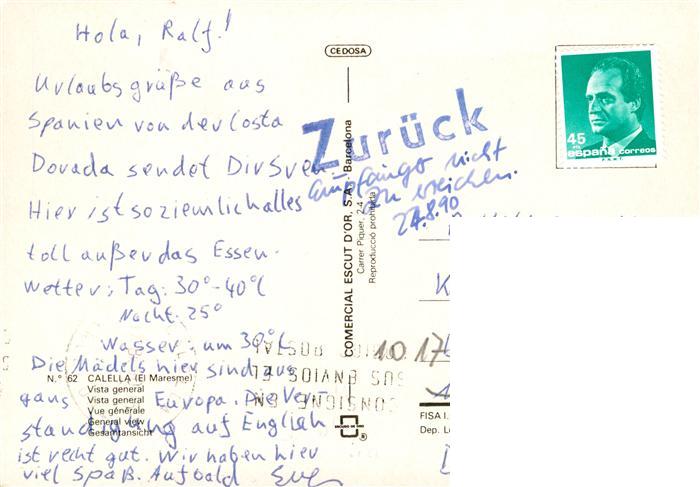 Hola, Ralf!
Urlaubsgrüße aus
Spanien von der Costa
Dorada sendet Dir Sven.
Hier ist so ziemlich alles
toll außer das Essen.
Wetter: Tag: 30°-40°C
Nacht: 25°
Wasser: um 30°C
Die Mädels hier sind aus
ganz Europa. Die Ver-
ständigung auf English
ist recht gut. Wir haben hier
viel Spaß. Auf bald
N.° 62 CALELLA (El Maresme)
Vista general
Vista general
Vue générale
General view
Gesamtansicht
CEDOSA
COMERCIAL ESCUT D'OR, S.A. Barcelona
Carrer Piquer, 2-4
Reproducció prohibida
Zurück
Empfänger nicht
zu erreichen.
27.8.90
45
PTS
españa correos
1017
POSTAL
SUS ENVIOS EL
CONSIGNE EN
FISA I.
Dep. L
K